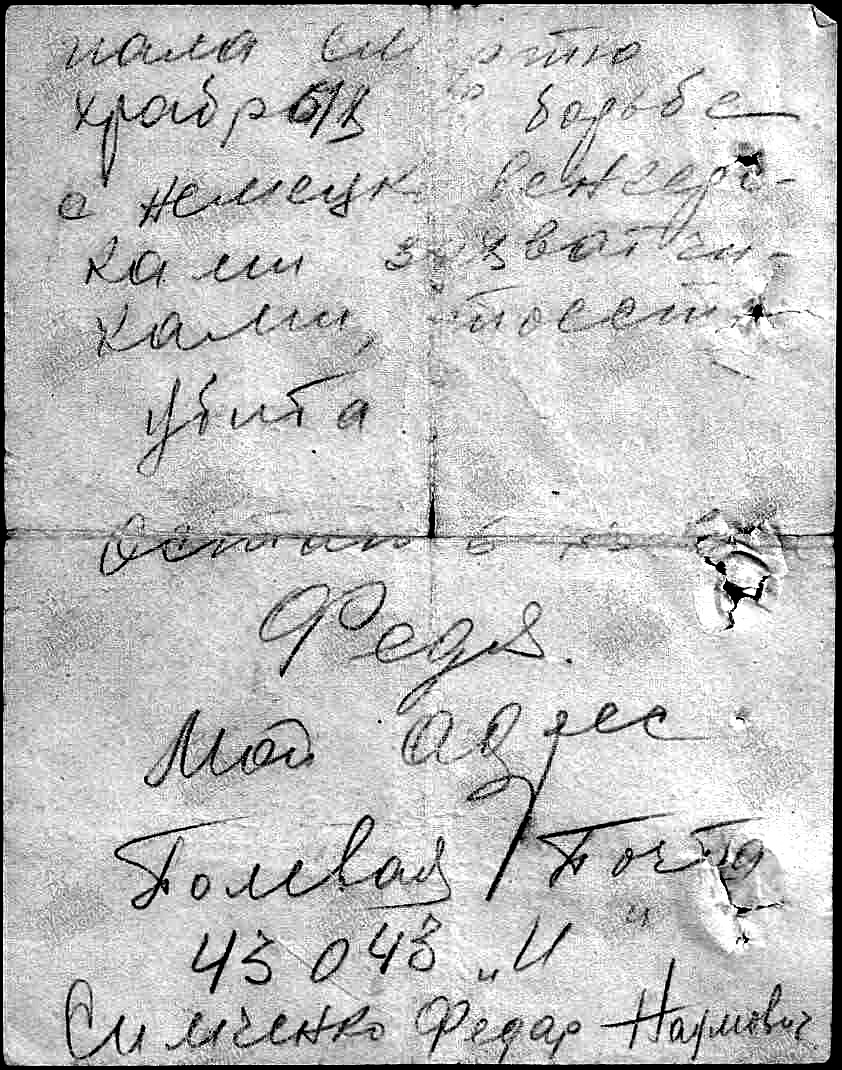 пала см ртю
храбрых в борьбе
с немецк венгерс-
ками захватчи-
ками,
убита
Федя.
Мой адрес
Полевая Почта
43043 „И"
Симченко Федар Наумович